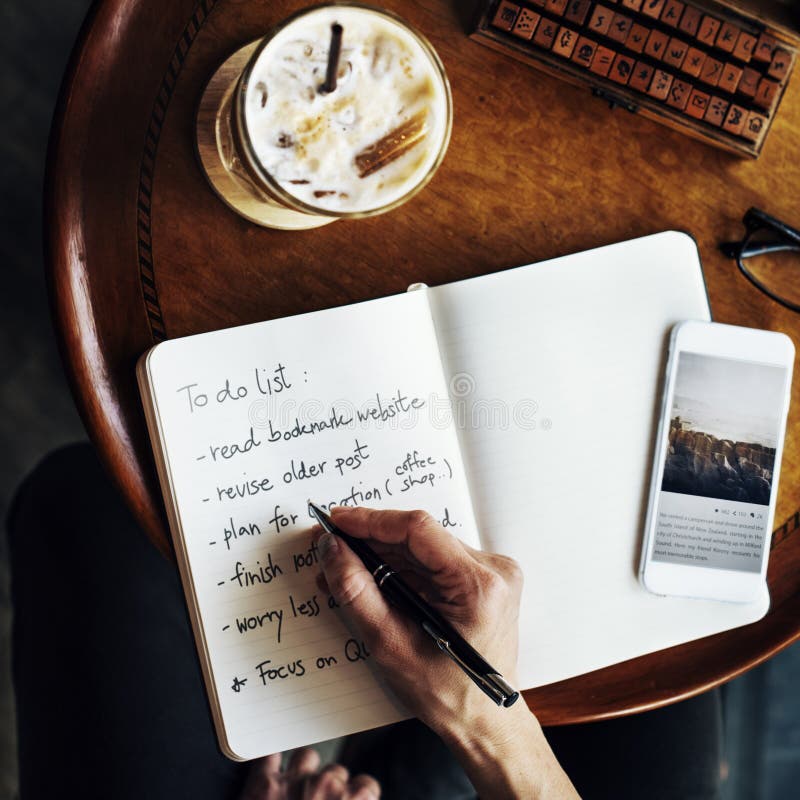 To do list :
- read bookmark website
- revise older post
- plan for location ( coffee shop.. )
- finish
- worry less
* Focus on
We rented a campervan and drove around the
South Island of New Zealand, starting in the
city of Christchurch and winding up in Milford
Sound. Here my friend Kinney recounts his
most memorable stops.
dreamstime